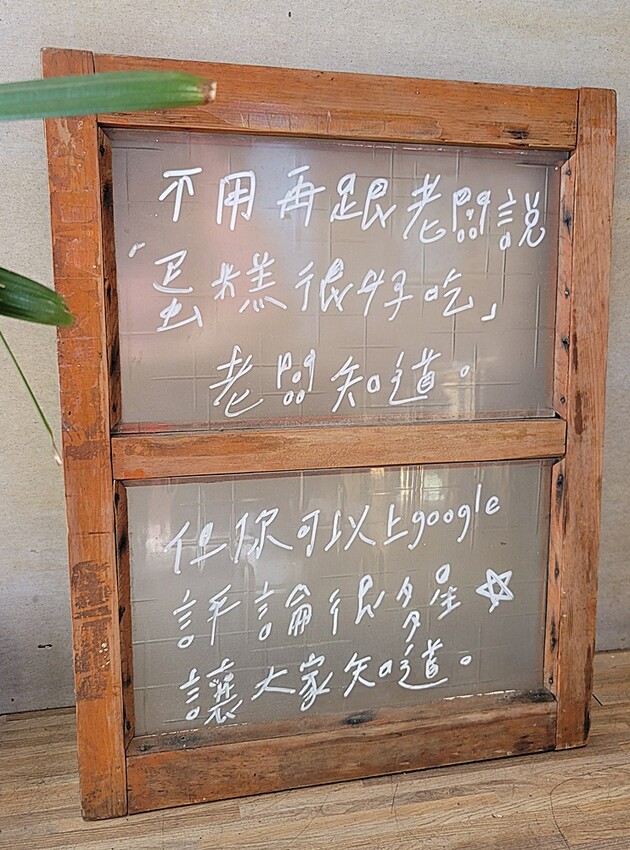 不用再跟老闆說
「蛋糕很好吃」
老闆知道。
但你可以上google
評論很多星☆
讓大家知道。